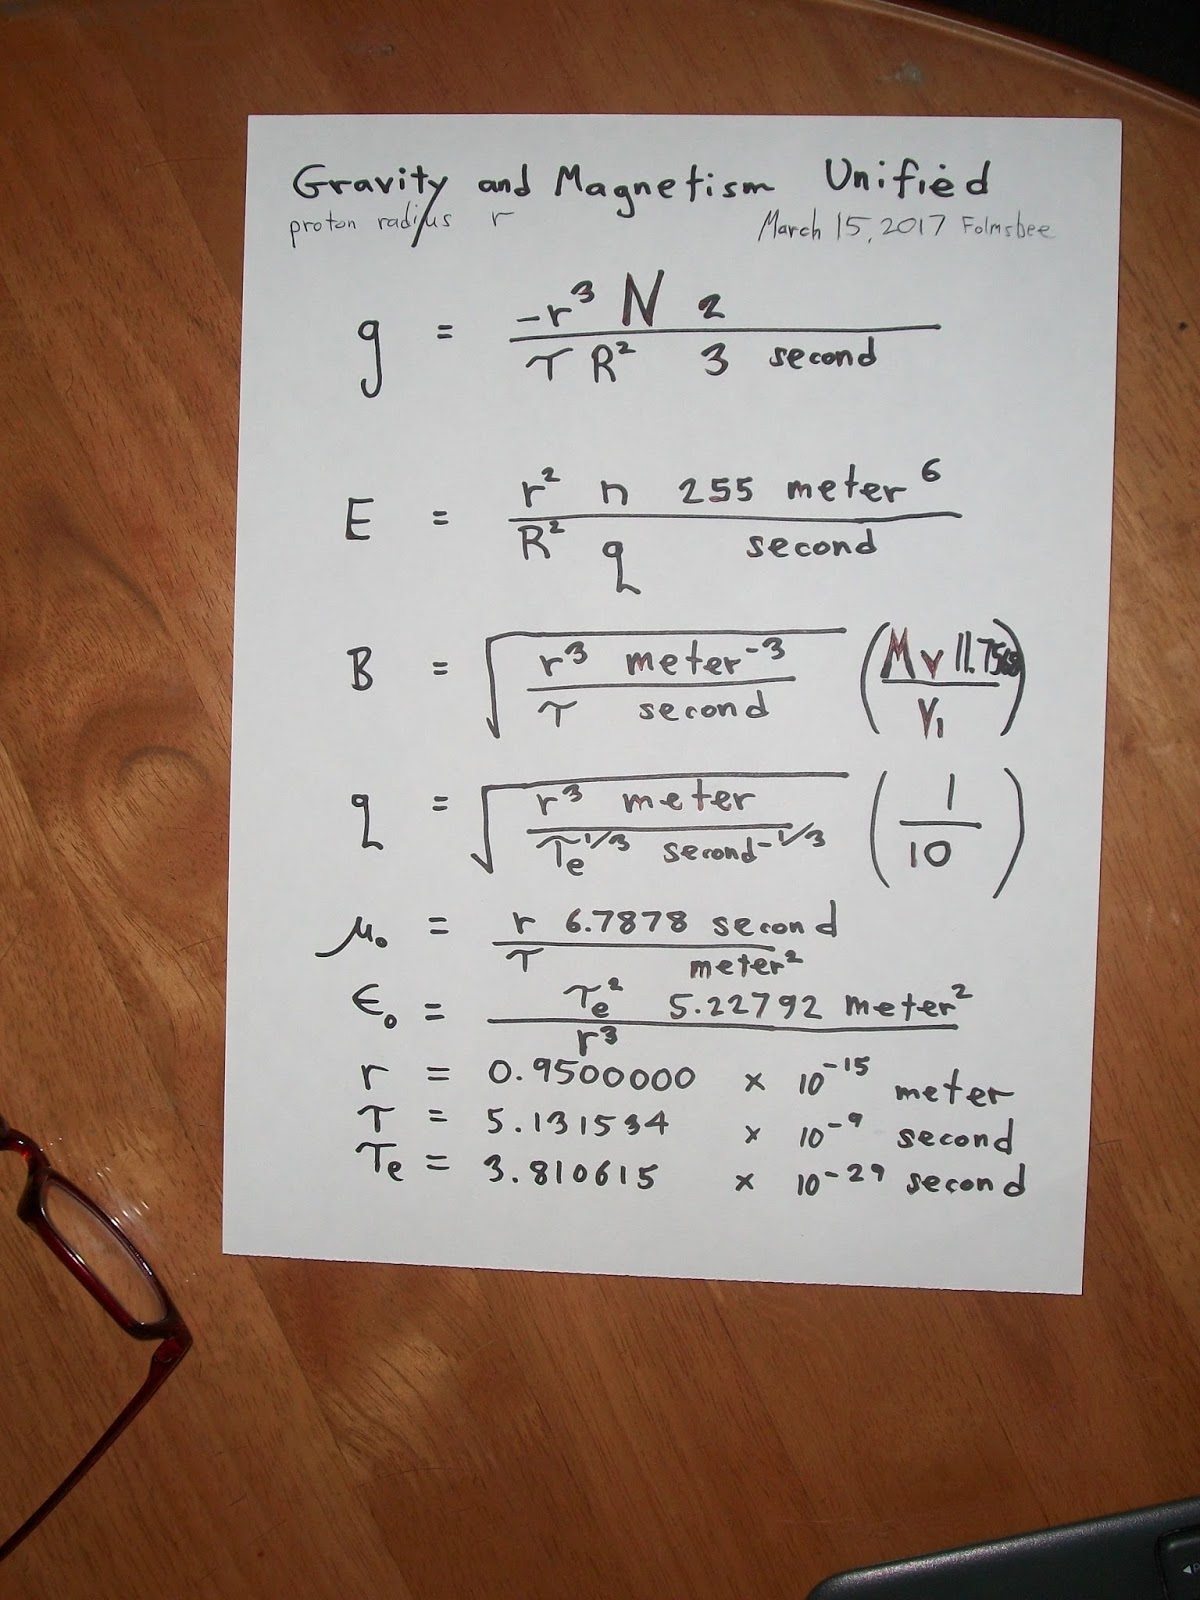 Gravity and Magnetism Unified
proton radius r March 15, 2017 Folmsbee
g = -r³ N 2 / T R² 3 second
E = r² n 255 meter⁶ / R² q second
B = √(r³ meter⁻³ / T second) (M v 11.756 / V₁)
q = √(r³ meter / Tₑ^1/3 second^-1/3) (1 / 10)
μ₀ = r 6.7878 second / T meter²
ϵ₀ = Tₑ² 5.22792 meter² / r³
r = 0.9500000 × 10⁻¹⁵ meter
T = 5.131534 × 10⁻⁹ second
Tₑ = 3.810615 × 10⁻²⁹ second